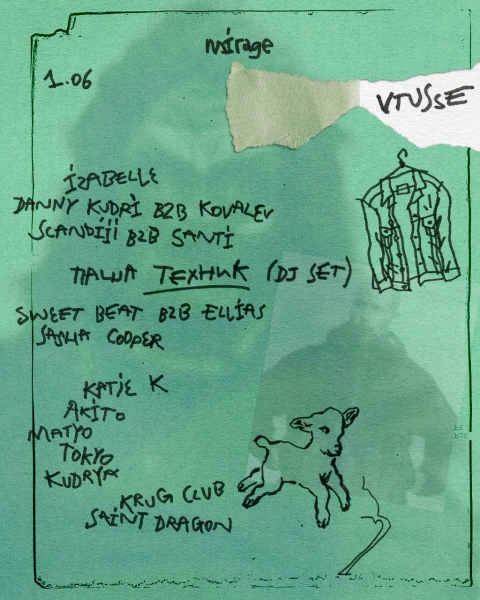 mirage
1.06
VTUSSE
iZABELLE
DANNY KUDRi B2B KOVALEV
SCANDiJi B2B SANTi
ПАША ТЕХНИК (DJ SET)
SWEET BEAT B2B ELLiAS
SASHA COOPER
KATiE K
AKiTO
MATYO
TOKYO
KUDRYA
KRUG CLUB
SAiNT DRAGON